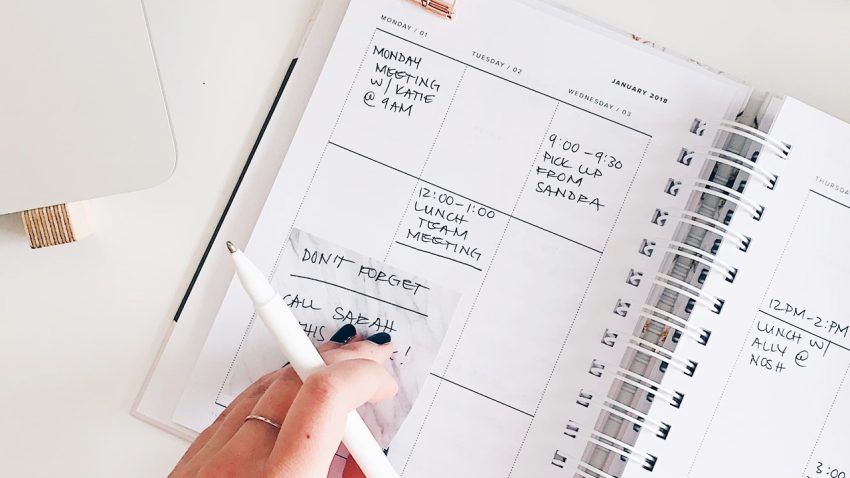 MONDAY / 01
MONDAY
MEETING
W/ KATIE
@ 9AM
TUESDAY / 02
12:00-1:00
LUNCH
TEAM
MEETING
JANUARY 2018
WEDNESDAY / 03
9:00-9:30
PICK UP
FROM
SANDRA
DON'T FORGET
CALL SARAH
THIS
THURSDAY
12PM-2PM
LUNCH W/
ALLY @
NOSH
3:00